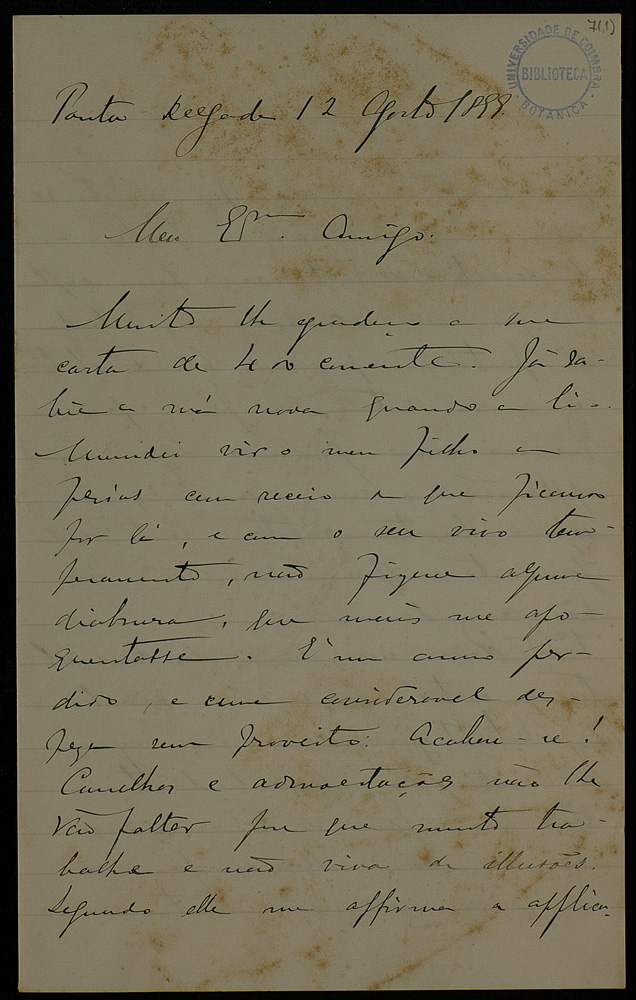 7(1)
UNIVERSIDADE DE COIMBRA
BIBLIOTECA
BOTANICA
Ponta Delgada 12 Agosto 1899
Meu Exmo. Amigo.
Muito lhe agradeço a sua
carta de 4 do corrente. Já sa-
bia a má nova quando a li.
Mandei vir o meu filho a
ferias com receio de que ficasse
por lá, e com o seu vivo tem-
peramento, não fizesse alguma
diabrura, que mais me afo-
guentasse. É um anno per-
dido, e uma consideravel des-
peza sem proveito. Acabou-se!
Conselhos e admoestações não lhe
vão faltar para que muito tra-
balhe e não viva de illusões.
Segundo elle me affirma a applica-